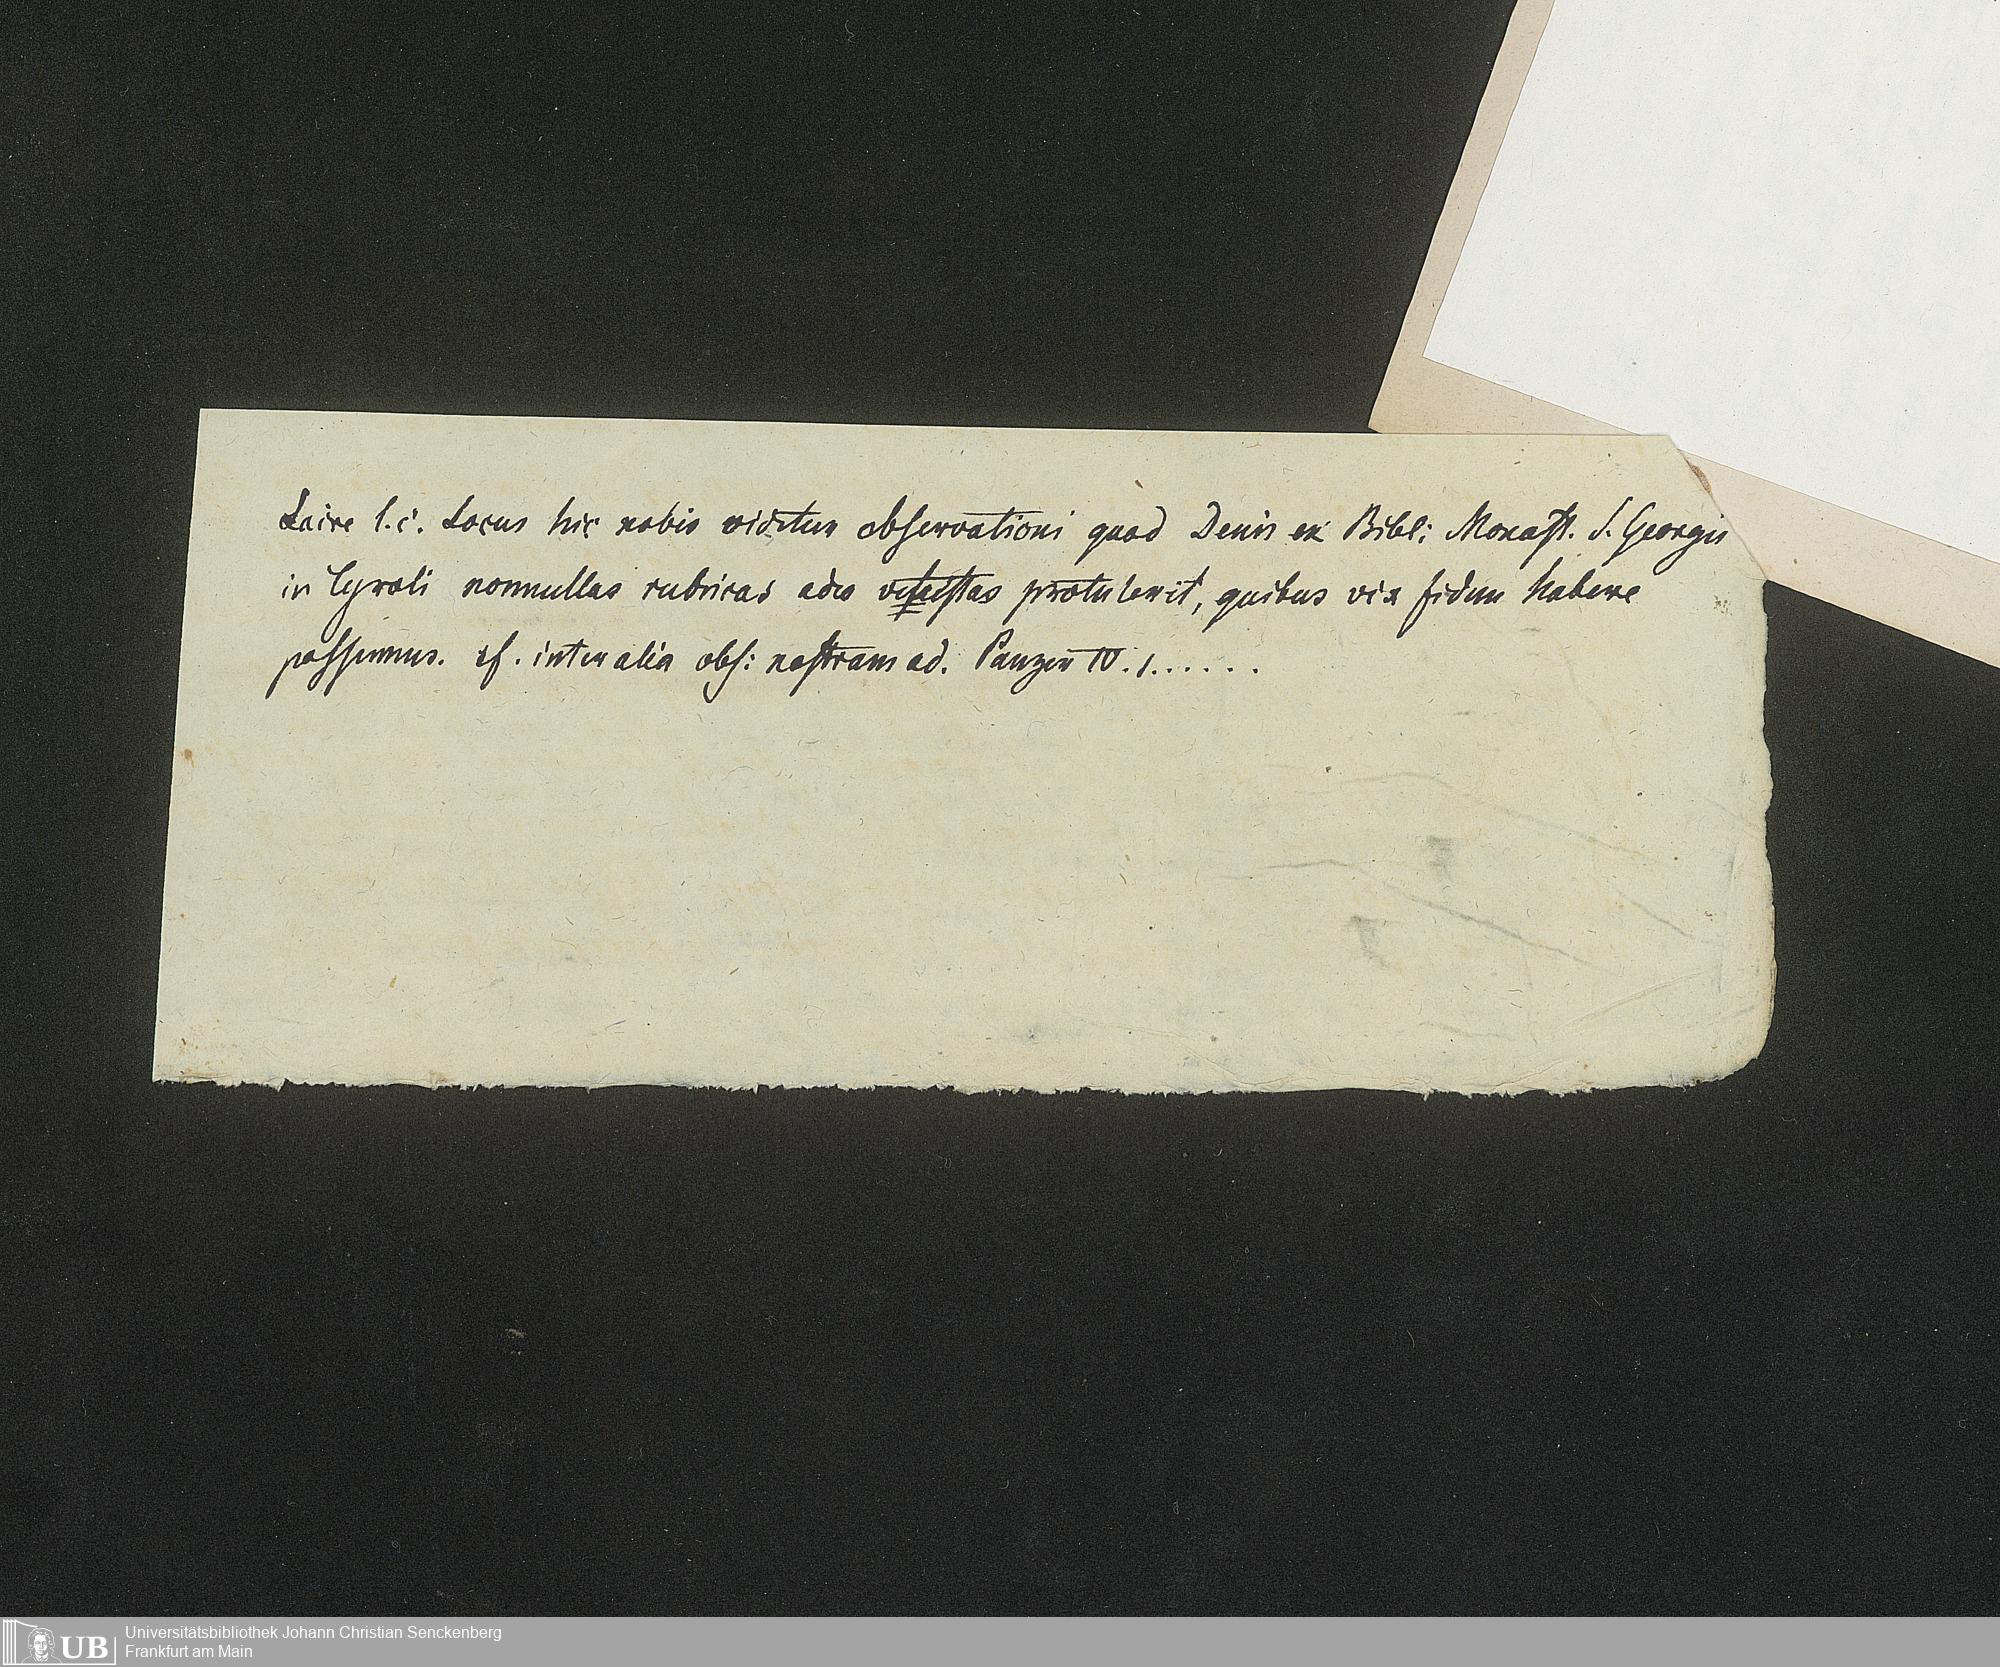 Laire l.c. Locus hic nobis videtur observationi quod Denis ex Bibl: Monast. S. Georgii
in Tyroli nonnullas rubricas adeo vetustas protulerit, quibus vix fidem habere
possumus. cf. inter alia obs: nostram ad. Panzer IV. 1......
UB Universitätsbibliothek Johann Christian Senckenberg
Frankfurt am Main